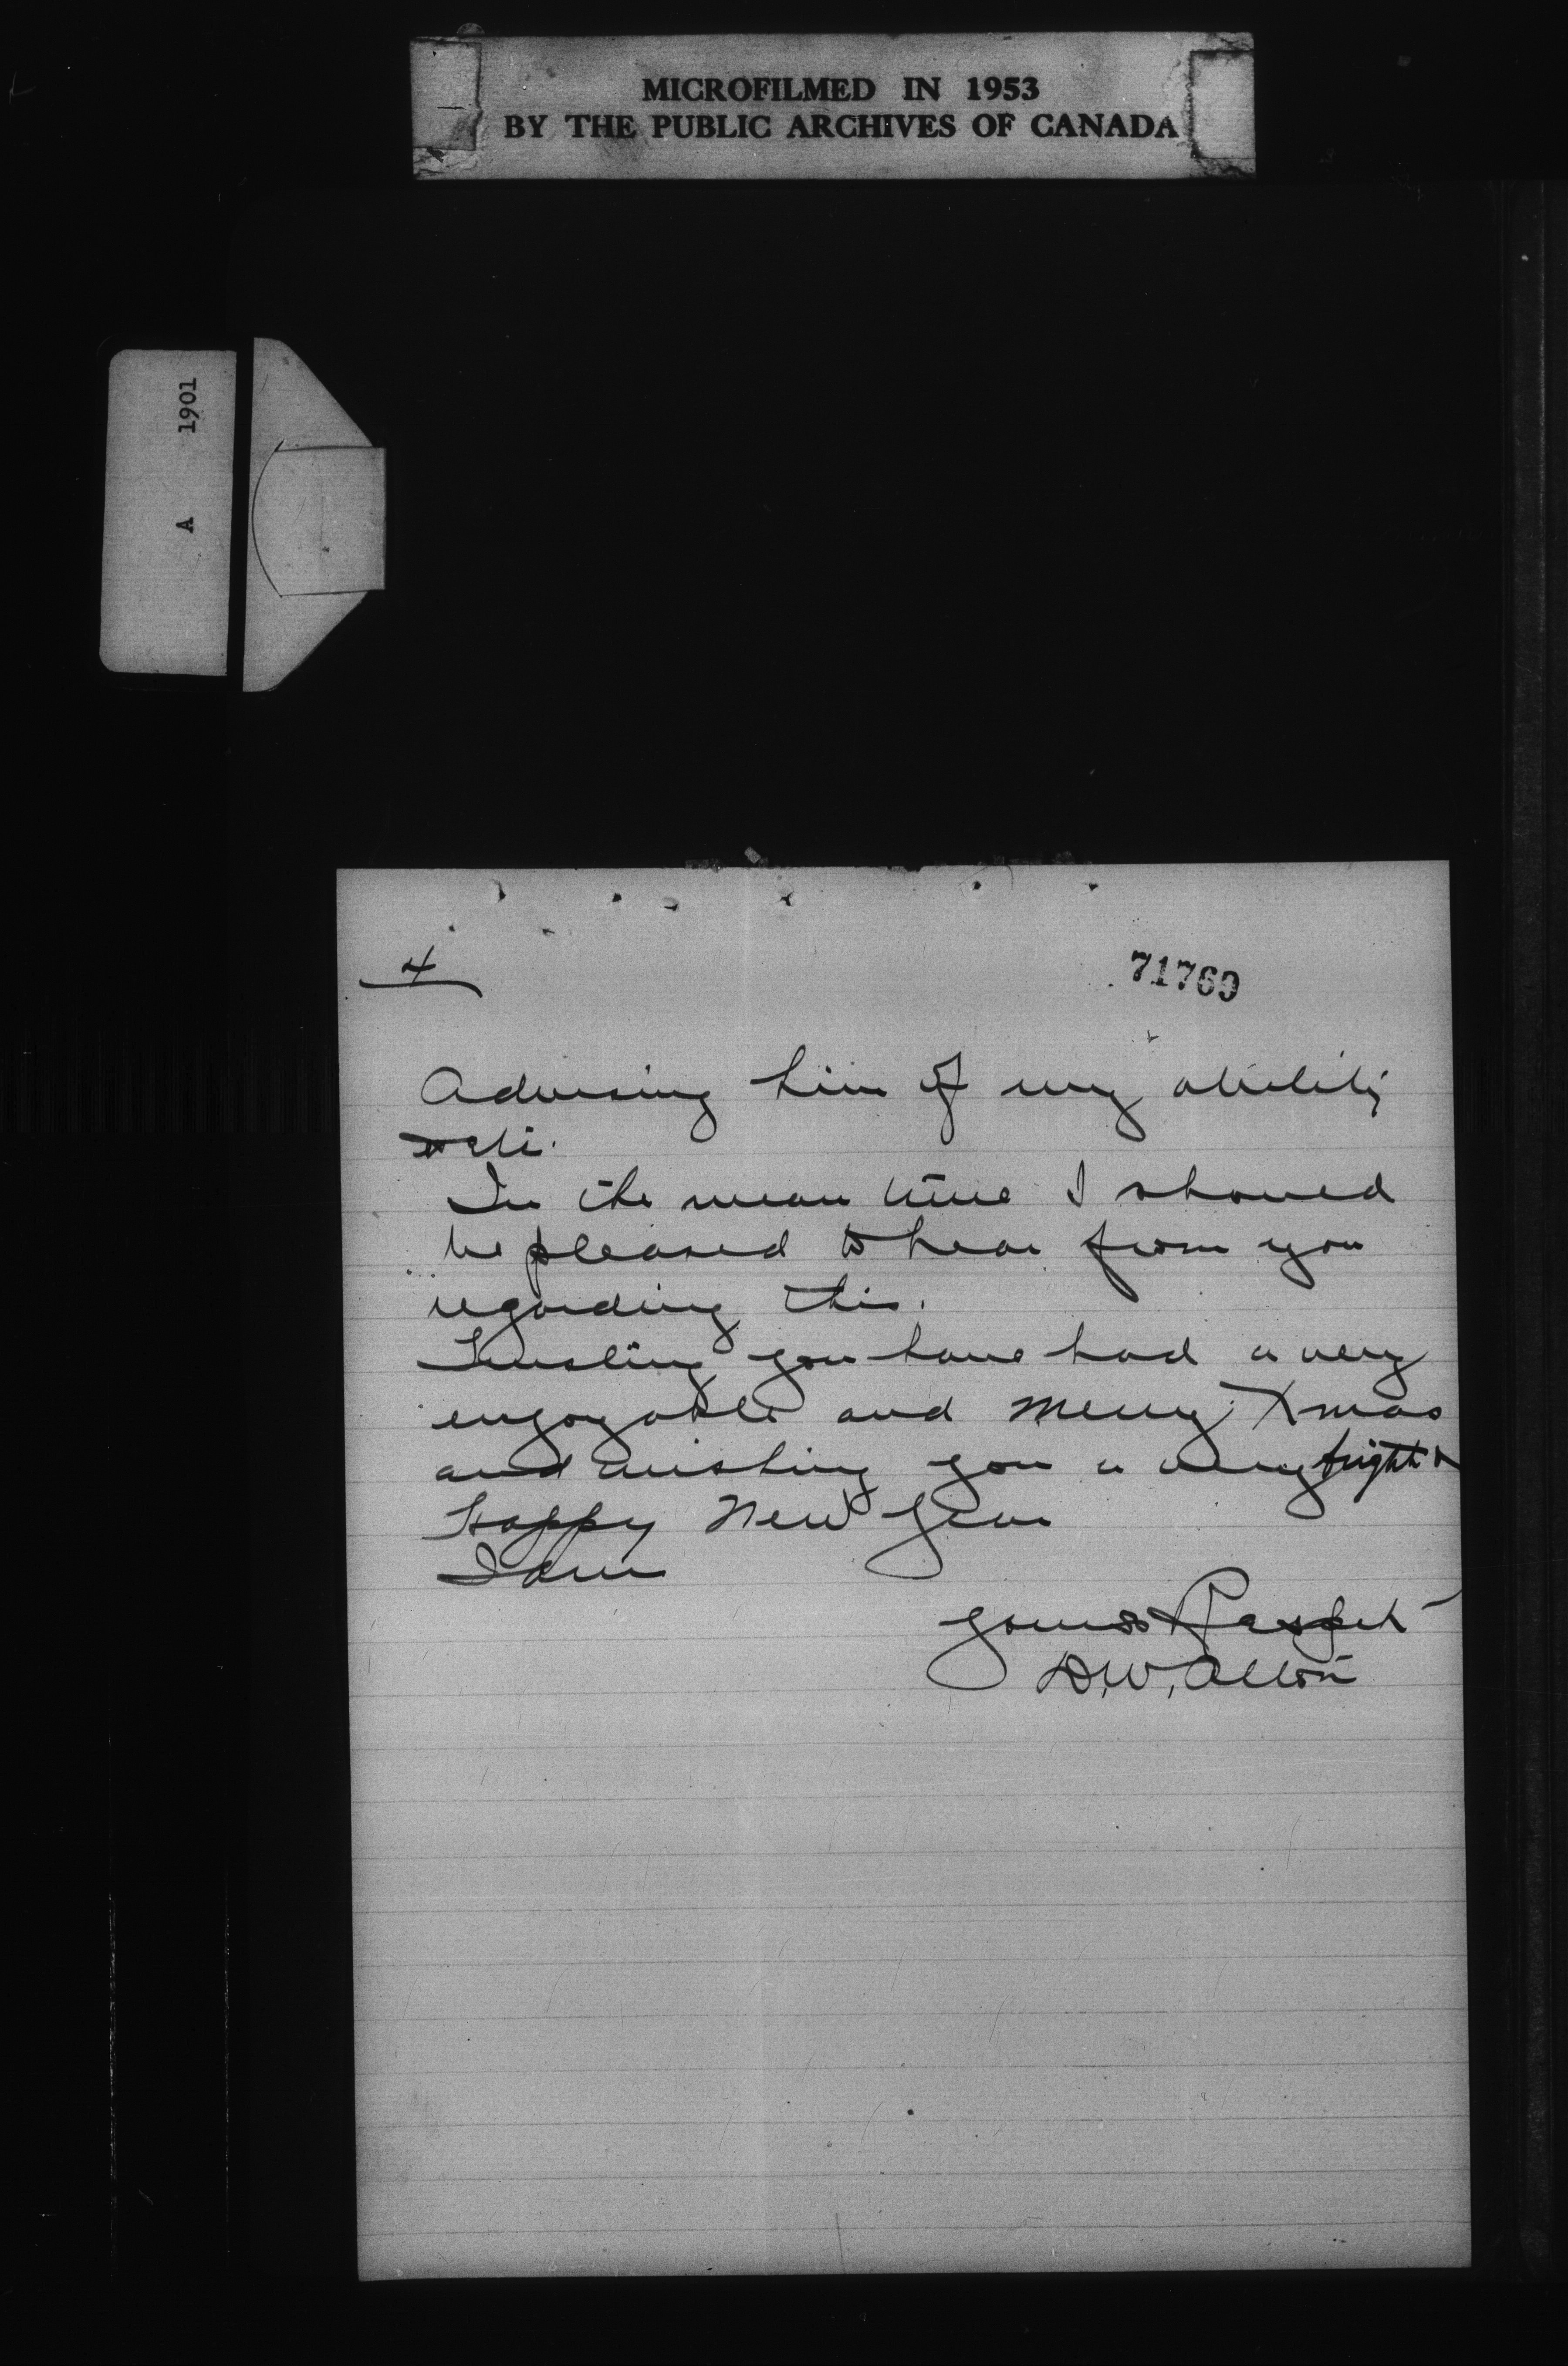 MICROFILMED IN 1953
BY THE PUBLIC ARCHIVES OF CANADA
A 1901
4
71760
Advising him of my ability
etc.
In the mean time I should
be pleased to hear from you
regarding this.
Trusting you have had a very
enjoyable and merry Xmas
and wishing you a very bright &
Happy New Year
I am
Yours Respect
D.W.